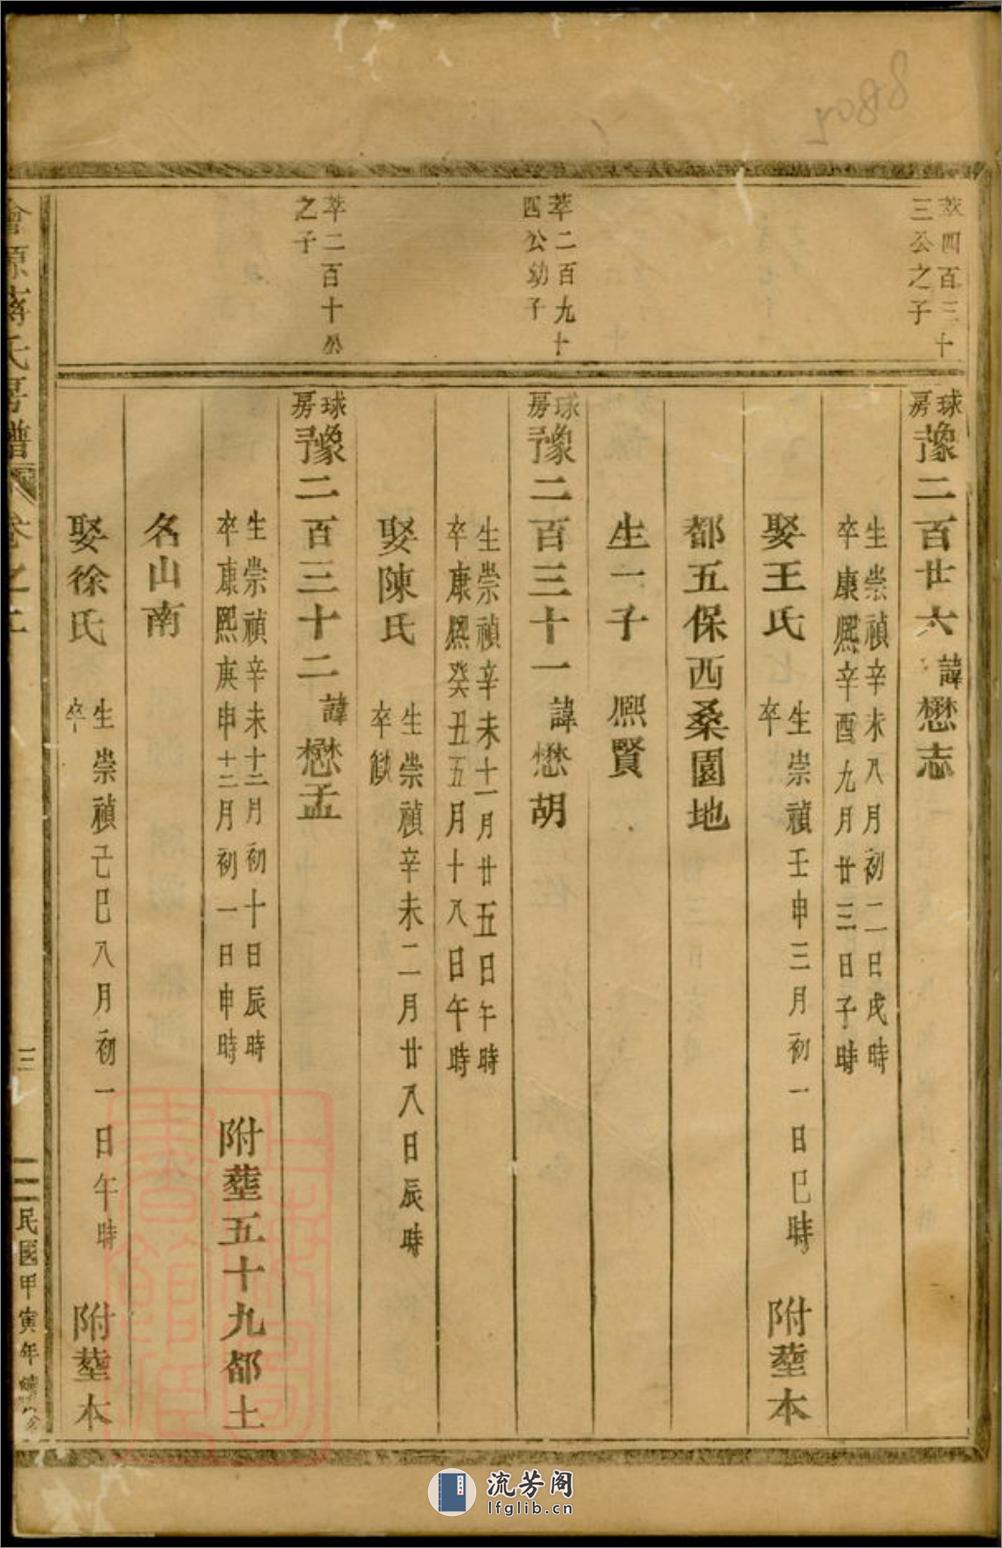 萃四百三十
三公之子
球房豫二百廿六諱懋志
生崇禎辛未八月初二日戌時
卒康熙辛酉九月廿三日子時
娶王氏
生崇禎壬申三月初一日巳時
卒
附塟本
都五保西桑園地
生一子 熙賢
萃二百九十
四公幼子
球房豫二百三十一諱懋胡
生崇禎辛未十一月廿五日午時
卒康熙癸丑五月十八日午時
娶陳氏
生崇禎辛未二月廿八日辰時
卒缺
萃二百十公
之子
球房豫二百三十二諱懋孟
生崇禎辛未十二月初十日辰時
卒康熙庚申十二月初一日申時
附塟五十九都土
名山南
娶徐氏
生崇禎己巳八月初一日午時
卒
附塟本
源蔣氏房譜 卷之二 三 民國甲寅年
上海圖書館藏
8807
流芳阁
lfglib.cn